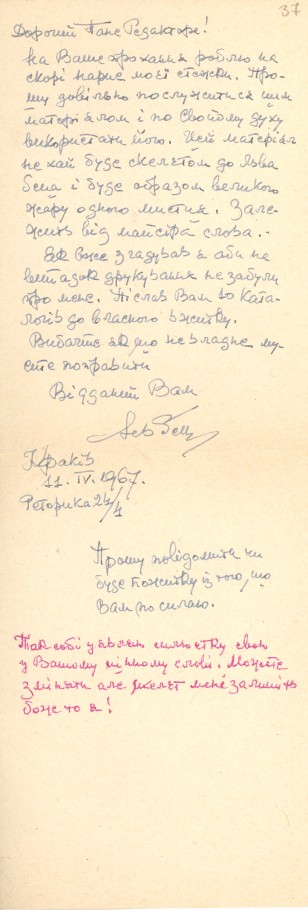 37
Дорогий Пане Редакторе!
На Ваше прохання роблю на
скорі нарис моєї стежки. Про-
шу довільно послужитися цим
матеріялом і по свойому духу
використати його. Цей матеріял
не хай буде скелетом до Льва
Ґеца і буде образом великого
жару одного мистця. Зале-
жить від майстра слова.-
Як вже згадував я аби на
випадок друкування не забули
про мене. Післав Вам 10 ката-
логів до власного вжитку.
Вибачте як що не владне му-
сите поправити
Відданий Вам
Лев Ґец
Краків
11. IV. 1967.
Реторика 24/4
Прошу повідомити чи
буде пожиток із того, що
Вам посилаю.
Так собі уявляю сильветку свою
у Вашому цінному слові. Можете
зміняти але скелет мене залишіть
боже то я!